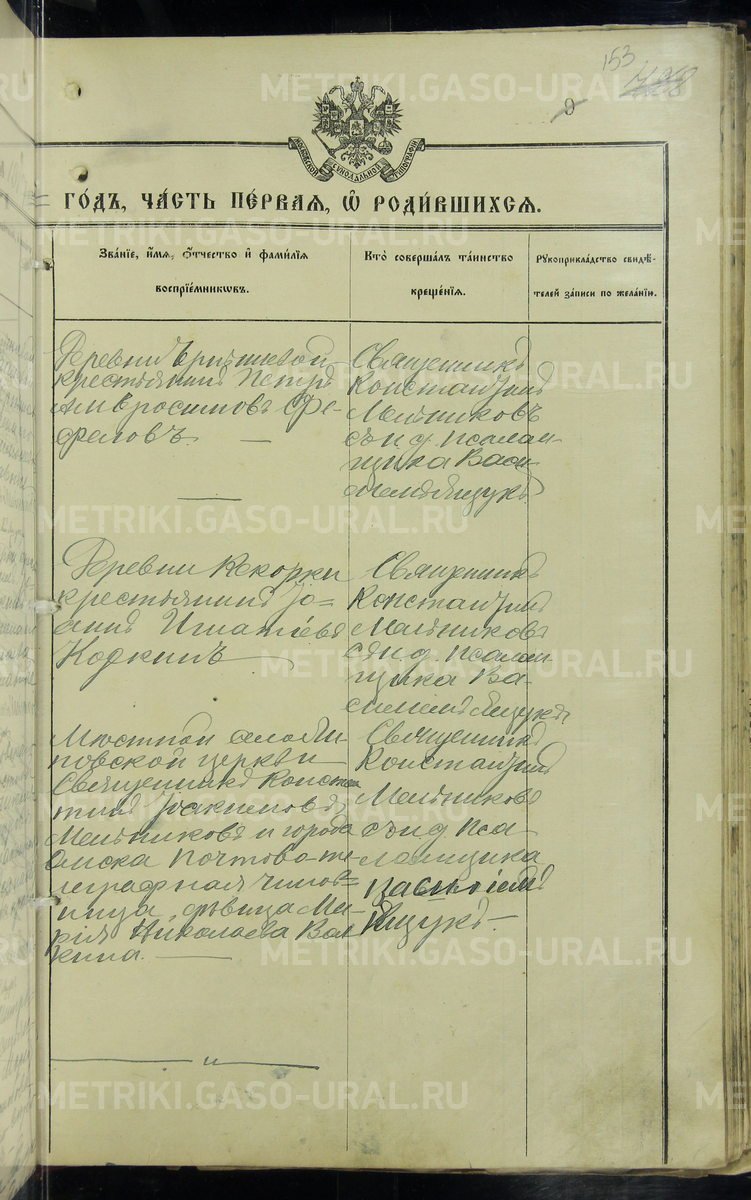 153
МОСКОВСКОЙ СѴНОДАЛЬНОЙ ТИПОГРАФІИ
ГО́ДЪ, ЧА́СТЬ ПЕ́РВАЯ, Ѡ҆ РОДИ́ВШИХСЯ.
Зва́ніе, и҆́мя, ѻ҆́тчество и҆ фамѝлія
воспріе́мникѡвъ.
Кто̀ соверша́лъ та́инство
креще́нія.
Рукоприкла́дство свидѣ́-
телей за́писи по жела́нію.
Деревни
крестьянинъ Петръ
Амвросимовъ Фе-
феловъ. —
Священникъ
Константинъ
Мельниковъ
съ и. д. псалом-
щика Васи-
лемъ Ящукъ
Деревни Кекорки
крестьянинъ Іо-
аннъ Игнатіевъ
Кодкинъ
Священникъ
Константинъ
Мельниковъ
съ и. д. псалом-
щика Ва-
силіемъ Ящукъ
Мѣстной села
повской церкви
Священникъ Констан
тинъ Іоакимовъ
Мельниковъ и города
Омска почтово-те
леграфная чинов=
ница, дѣвица Ма-
рія Николаева Вол
кина. —
Священникъ
Константинъ
Мельниковъ
съ и. д. пса-
ломщика
Василіемъ
Ящукъ. —
METRIKI.GASO-URAL.RU